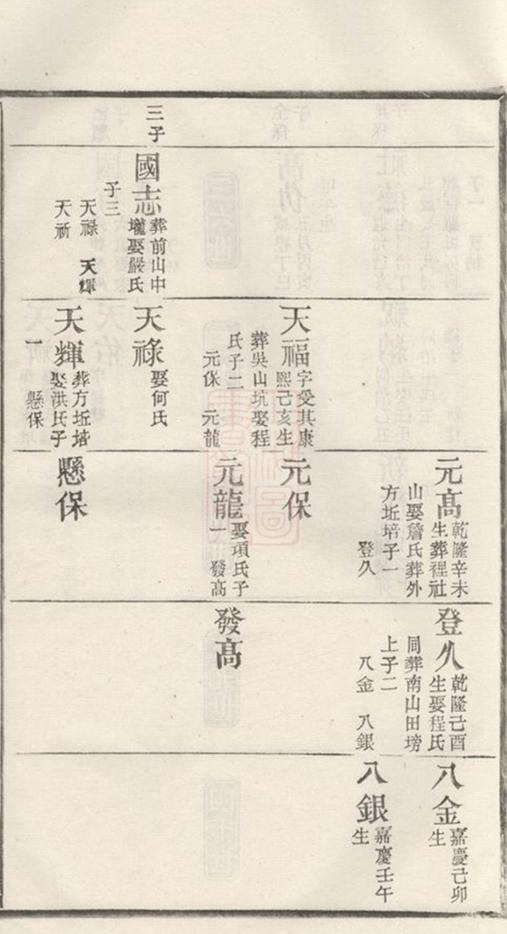 三子
國志
葬前山中
壠娶嚴氏
子三
天祿 天輝
天祈
天福
字受其康
熙己亥生
葬吳山坑娶程
氏子二
元保 元龍
天祿
娶何氏
天輝
葬方坵培
娶洪氏子
一
懸保
元髙
乾隆辛未
生葬裡社
山娶詹氏葬外
方坵培子一
登久
元保
元龍
娶項氏子
一 發髙
懸保
登久
乾隆己酉
生娶程氏
同葬南山田塝
上子二
八金 八銀
發髙
八金
嘉慶己卯
生
八銀
嘉慶壬午
生